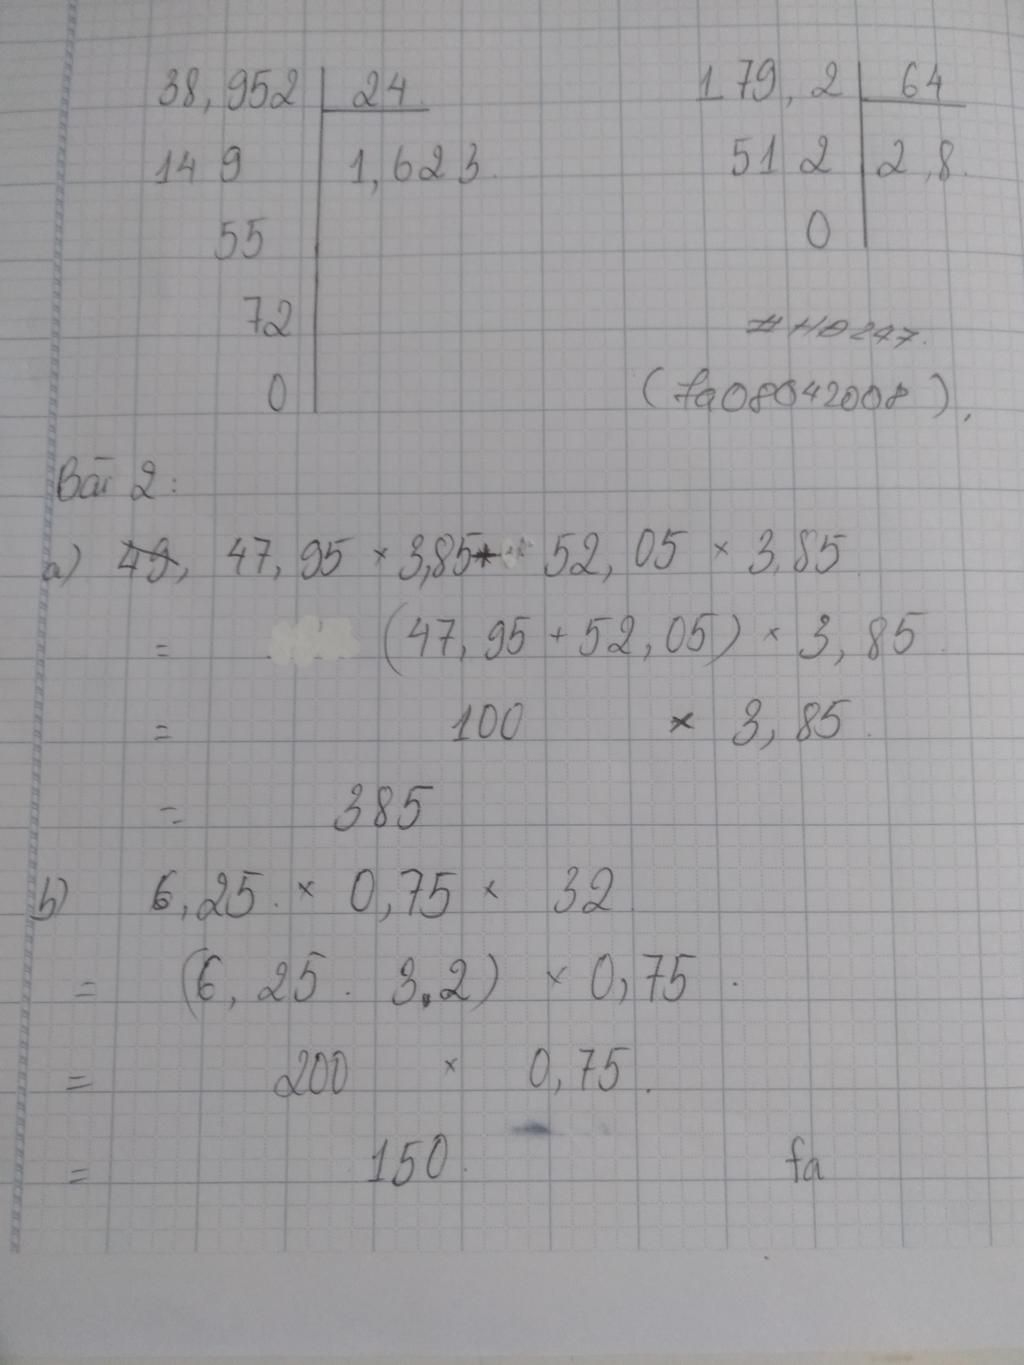 38,952 24
149 1,623
55
72
0
179,2 64
512 2,8
0
#HD247.
(fa08042008).
Bài 2:
a) 49, 47,95 × 3,85 + 52,05 × 3,85
= (47,95 + 52,05) × 3,85
= 100 × 3,85
= 385
b) 6,25 × 0,75 × 32
= (6,25 . 3.2) × 0,75
= 200 × 0,75.
= 150 fa